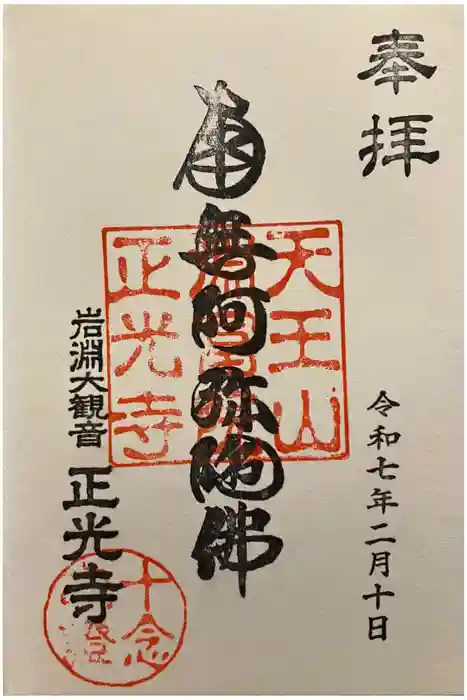 奉拝
令和七年二月十日
南無阿弥陀佛
天王山
正光寺
岩淵大観音
正光寺
十念